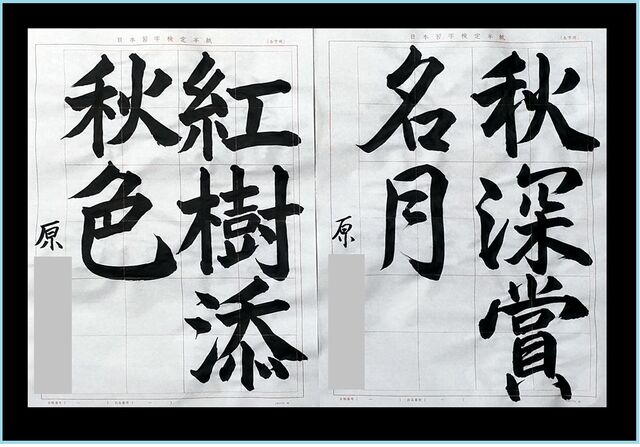 日本習字検定半紙
秋深賞
名月
原
日本習字検定半紙
紅樹添
秋色
原